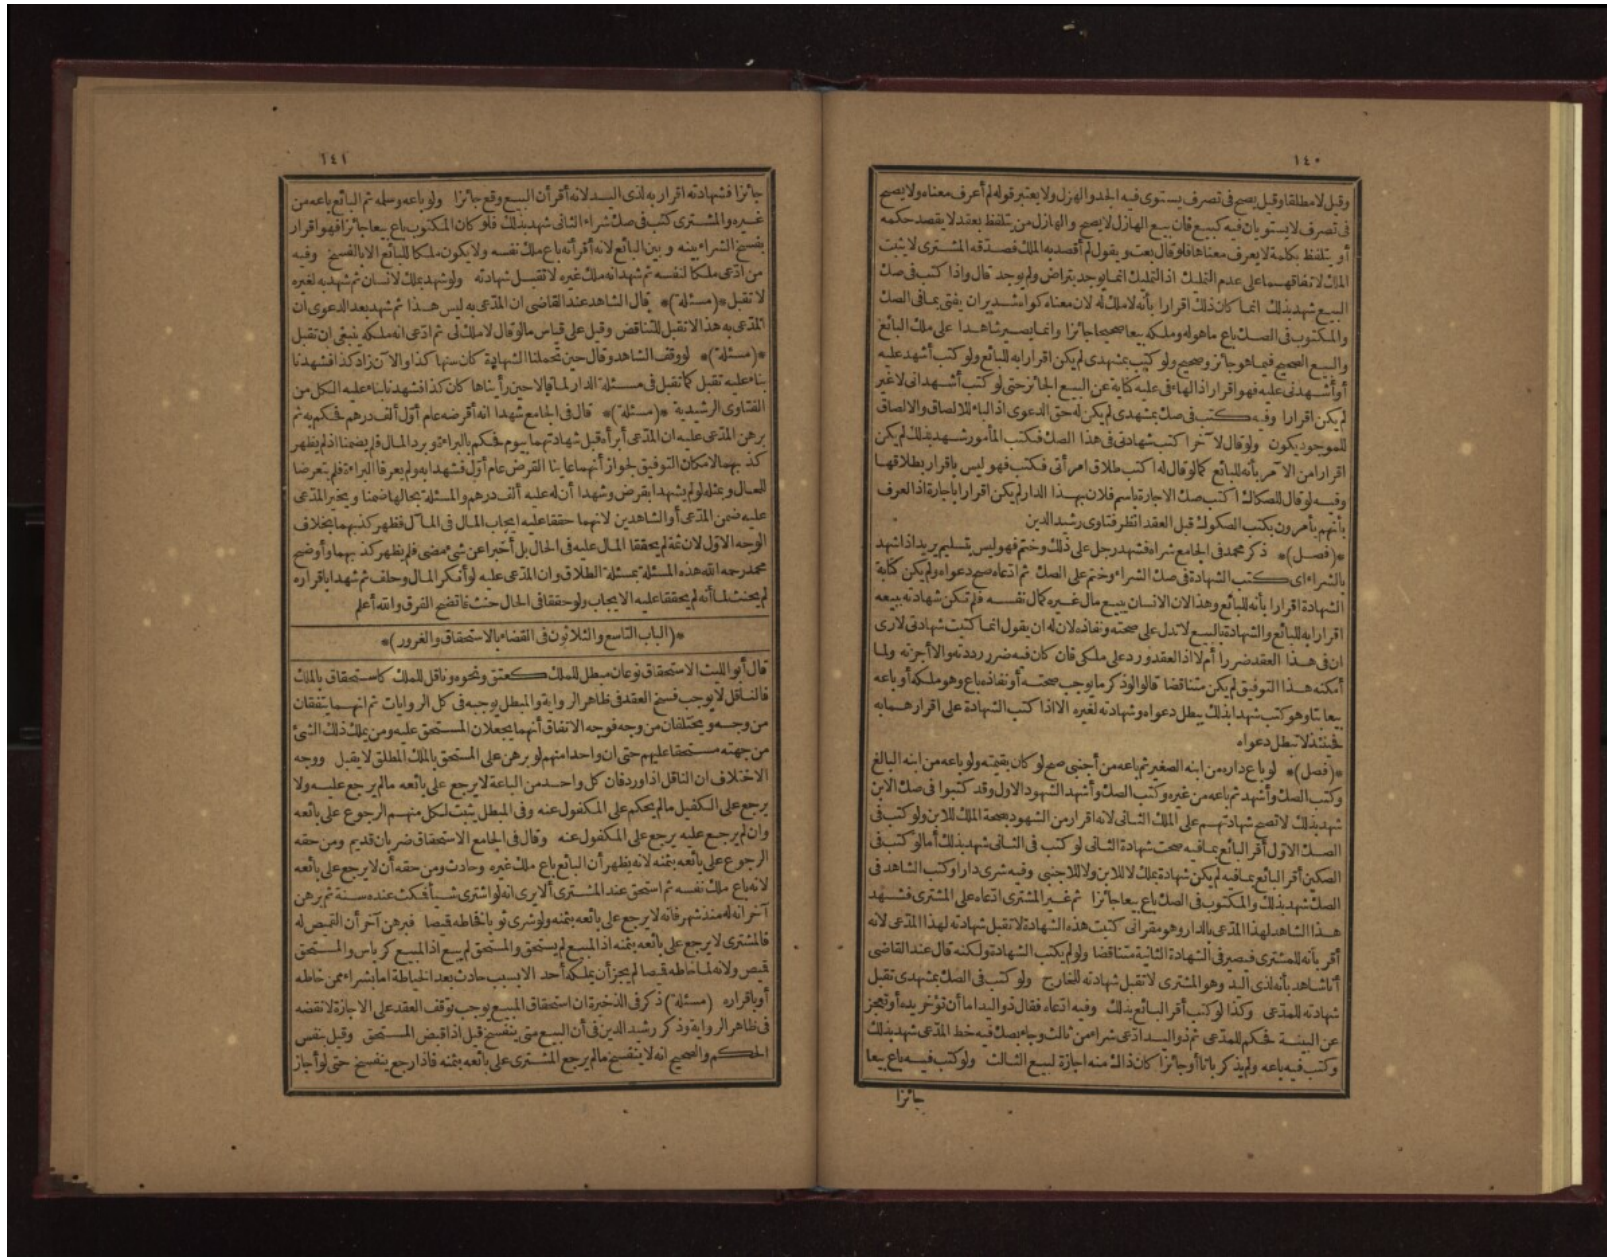 ١٤٠
وقيل لا مطلقا وقيل يصح في تصرف يستوى فيه الجد والهزل ولا يعتبر قوله لم أعرف معناه ولا يصح
في تصرف لا يستويان فيه كبيع فان بيع الهازل لا يصح والهازل من يتلفظ بعقد لا يقصد حكمه
أو يتلفظ بكلمة لا يعرف معناها فلو قال بعت ويقول لم أقصد به الملك فصدقه المشترى لا يثبت
الملك لاتفاقهما على عدم التمليك اذ التمليك انما يوجد بتراض ولم يوجد قال واذا كتب في صك
البيع شهد بذلك انما كان ذلك اقرارا بأنه لا ملك له لان معناه كواه شديران يفتى بما في الصك
والمكتوب في الصك باع ما هو له وملكه بيعا صحيحا جائزا وانما يصير شاهدا على ملك البائع
والبيع الصحيح فيما هو جائز وصحيح ولو كتب بمشهدى لم يكن اقرارا به للبائع ولو كتب أشهد عليه
أو أشهدنى عليه فهو اقرار اذ الهاء في عليه كناية عن البيع الجائز حتى لو كتب أشهدانى لا غير
لم يكن اقرارا وفيه كتب في صك بمشهدى لم يكن له حق الدعوى اذ الباء للالصاق والالصاق
للموجود يكون ولو قال لآخر اكتب شهادتى في هذا الصك فكتب المأمور شهد بذلك لم يكن
اقرارا من الآمر بأنه للبائع كما لو قال له اكتب طلاق امرأتى فكتب فهو ليس باقرار بطلاقها
وفيه لو قال للصكاك اكتب صك الاجارة باسم فلان بهذا الدار لم يكن اقرارا باجارة اذ العرف
بأنهم يأمرون بكتب الصكوك قبل العقد انظر فتاوى رشيد الدين
*(فصل)* ذكر محمد في الجامع شراه فشهد رجل على ذلك وختم فهو ليس بتسليم يريد اذا شهد
بالشراء اى كتب الشهادة في صك الشراء وختم على الصك ثم ادعاه صح دعواه ولم يكن كتابة
الشهادة اقرارا بأنه للبائع وهذا لان الانسان يبيع مال غيره كمال نفسه فلم تكن شهادته ببيعه
اقرارا به للبائع والشهادة بالبيع لا تدل على صحته ونفاذه لان له ان يقول انما كتبت شهادتى لارى
ان في هذا العقد ضررا أم لا اذ العقد ورد على ملكى فان كان فيه ضرر رددته والا أجزته ولما
أمكنه هذا التوفيق لم يكن متناقضا قالوا لو ذكر ما يوجب صحته أو نفاذه باع وهو ملكه أو باعه
بيعا بتا وهو كتب شهد بذلك يبطل دعواه وشهادته لغيره الا اذا كتب الشهادة على اقرارهما به
فحينئذ لا تبطل دعواه
*(فصل)* لو باع داره من ابنه الصغير ثم باعه من أجنبى صح لو كان بقيمته ولو باعه من ابنه البالغ
وكتب الصك وأشهد ثم باعه من غيره وكتب الصك وأشهد الشهود الاول وقد كتبوا في صك الابن
شهد بذلك لا تصح شهادتهم على الملك الثانى لانه اقرار من الشهود بصحة الملك للابن ولو كتب في
الصك الاول أقر البائع بما فيه صحت شهادة الثانى لو كتب في الثانى شهد بذلك أما لو كتب في
الصكين أقر البائع بما فيه لم يكن شهادة بملك لا للابن ولا للاجنبى وفيه شرى دارا وكتب الشاهد في
الصك شهد بذلك والمكتوب في الصك باع بيعا جائزا ثم غير المشترى ادعاه على المشترى فشهد
هذا الشاهد لهذا المدعى بالدار وهو مقر انى كتبت هذه الشهادة لا تقبل شهادته لهذا المدعى لانه
أقر بأنه للمشترى فيصير في الشهادة الثانية متناقضا ولو لم يكتب الشهادة ولكنه قال عند القاضى
أنا شاهد بأنه لذى اليد وهو المشترى لا تقبل شهادته للخارج ولو كتب في الصك بمشهدى تقبل
شهادته للمدعى وكذا لو كتب أقر البائع بذلك وفيه ادعاء فقال ذو اليد اما أن تؤخر يده أو تعجز
عن البينة فحكم للمدعى ثم ذو اليد ادعى شراء من ثالث وجاء بصك فيه خط المدعى شهد بذلك
وكتب فيه باعه ولم يذكر باتا أو جائزا كان ذاك منه اجازة لبيع الثالث ولو كتب فيه باع بيعا
جائزا
١٤١
جائزا فشهادته اقرار به لذى اليد لانه أقر أن البيع وقع جائزا ولو باعه وسلمه ثم البائع باعه من
غيره والمشترى كتب في صك شراء الثانى شهد بذلك فلو كان المكتوب باع بيعا جائزا فهو اقرار
بفسخ الشراء بينه وبين البائع لانه أقر أنه باع ملك نفسه ولا يكون ملكا للبائع الا بالفسخ وفيه
من ادعى ملكا لنفسه ثم شهد انه ملك غيره لا تقبل شهادته ولو شهد بملك لانسان ثم شهد به لغيره
لا تقبل *(مسئلة)* قال الشاهد عند القاضى ان المدعى به ليس هذا ثم شهد بعد الدعوى ان
المدعى به هذا لا تقبل للتناقض وقيل على قياس ما لو قال لا ملك لى ثم ادعى انه ملكه ينبغى ان تقبل
*(مسئلة)* لو وقف الشاهد وقال حين تحملنا الشهادة كان سنها كذا والآن زاد كذا فشهدنا
بناء عليه تقبل كما تقبل في مسئلة الدار لما قالا حين رأيناها كان كذا فشهدنا بناء عليه الكل من
الفتاوى الرشيدية *(مسئلة)* قال في الجامع شهدا انه أقرضه عام أول ألف درهم فحكم به ثم
برهن المدعى عليه ان المدعى أبرأه قبل شهادتهما بيوم فحكم بالبراءة وبرد المال فلم يضمنا اذ لم يظهر
كذبهما لامكان التوفيق لجواز أنهما عاينا القرض عام أول فشهدا به ولم يعرفا البراءة فلم يتعرضا
للحال وبمثله لو لم يشهدا بقرض وشهدا أن له عليه ألف درهم والمسئلة بحالها ضمنا ويخير المدعى
عليه ضمن المدعى أو الشاهدين لانهما حققا عليه ايجاب المال في المآل فظهر كذبهما بخلاف
الوجه الاول لان ثمة لم يحققا المال عليه في الحال بل أخبرا عن شئ مضى فلم يظهر كذبهما وأوضح
محمد رحمه الله هذه المسئلة بمسئلة الطلاق وان المدعى عليه لو أنكر المال وحلف ثم شهدا باقراره
لم يحنث لما أنه لم يحققا عليه الايجاب ولو حققا في الحال حنث فاتضح الفرق والله أعلم
*(الباب التاسع والثلاثون في القضاء بالاستحقاق والغرور)*
قال أبو الليث الاستحقاق نوعان مبطل للملك كعتق ونحوه وناقل للملك كاستحقاق بالملك
فالناقل لا يوجب فسخ العقد في ظاهر الرواية والمبطل يوجبه في كل الروايات ثم انهما يتفقان
من وجه ويختلفان من وجه فوجه الاتفاق أنهما يجعلان المستحق عليه ومن يملك ذلك الشئ
من جهته مستحقا عليهم حتى ان واحدا منهم لو برهن على المستحق بالملك المطلق لا يقبل ووجه
الاختلاف ان الناقل اذا ورد فان كل واحد من الباعة لا يرجع على بائعه ما لم يرجع عليه ولا
يرجع على الكفيل ما لم يحكم على المكفول عنه وفي المبطل يثبت لكل منهم الرجوع على بائعه
وان لم يرجع عليه يرجع على المكفول عنه وقال في الجامع الاستحقاق ضربان قديم ومن حقه
الرجوع على بائعه بثمنه لانه يظهر أن البائع باع ملك غيره وحادث ومن حقه أن لا يرجع على بائعه
لانه باع ملك نفسه ثم استحق عند المشترى ألا يرى انه لو اشترى شيأ فمكث عنده سنة ثم برهن
آخر انه له منذ شهر فانه لا يرجع على بائعه بثمنه ولو شرى ثوبا فخاطه قميصا فبرهن آخر أن القميص له
فالمشترى لا يرجع على بائعه بثمنه اذ المبيع لم يستحق والمستحق لم يبع اذ المبيع كرباس والمستحق
قميص ولانه لما خاطه قميصا لم يجز أن يملكه أحد الا بسبب حادث بعد الخياطة اما بشراء ممن خاطه
أو باقراره (مسئلة) ذكر في الذخيرة ان استحقاق المبيع يوجب توقف العقد على الاجازة لا نقضه
في ظاهر الرواية وذكر رشيد الدين في أن البيع متى ينفسخ قيل اذا قبض المستحق وقيل بنفس
الحكم والصحيح انه لا ينفسخ ما لم يرجع المشترى على بائعه بثمنه فاذا رجع ينفسخ حتى لو أجاز